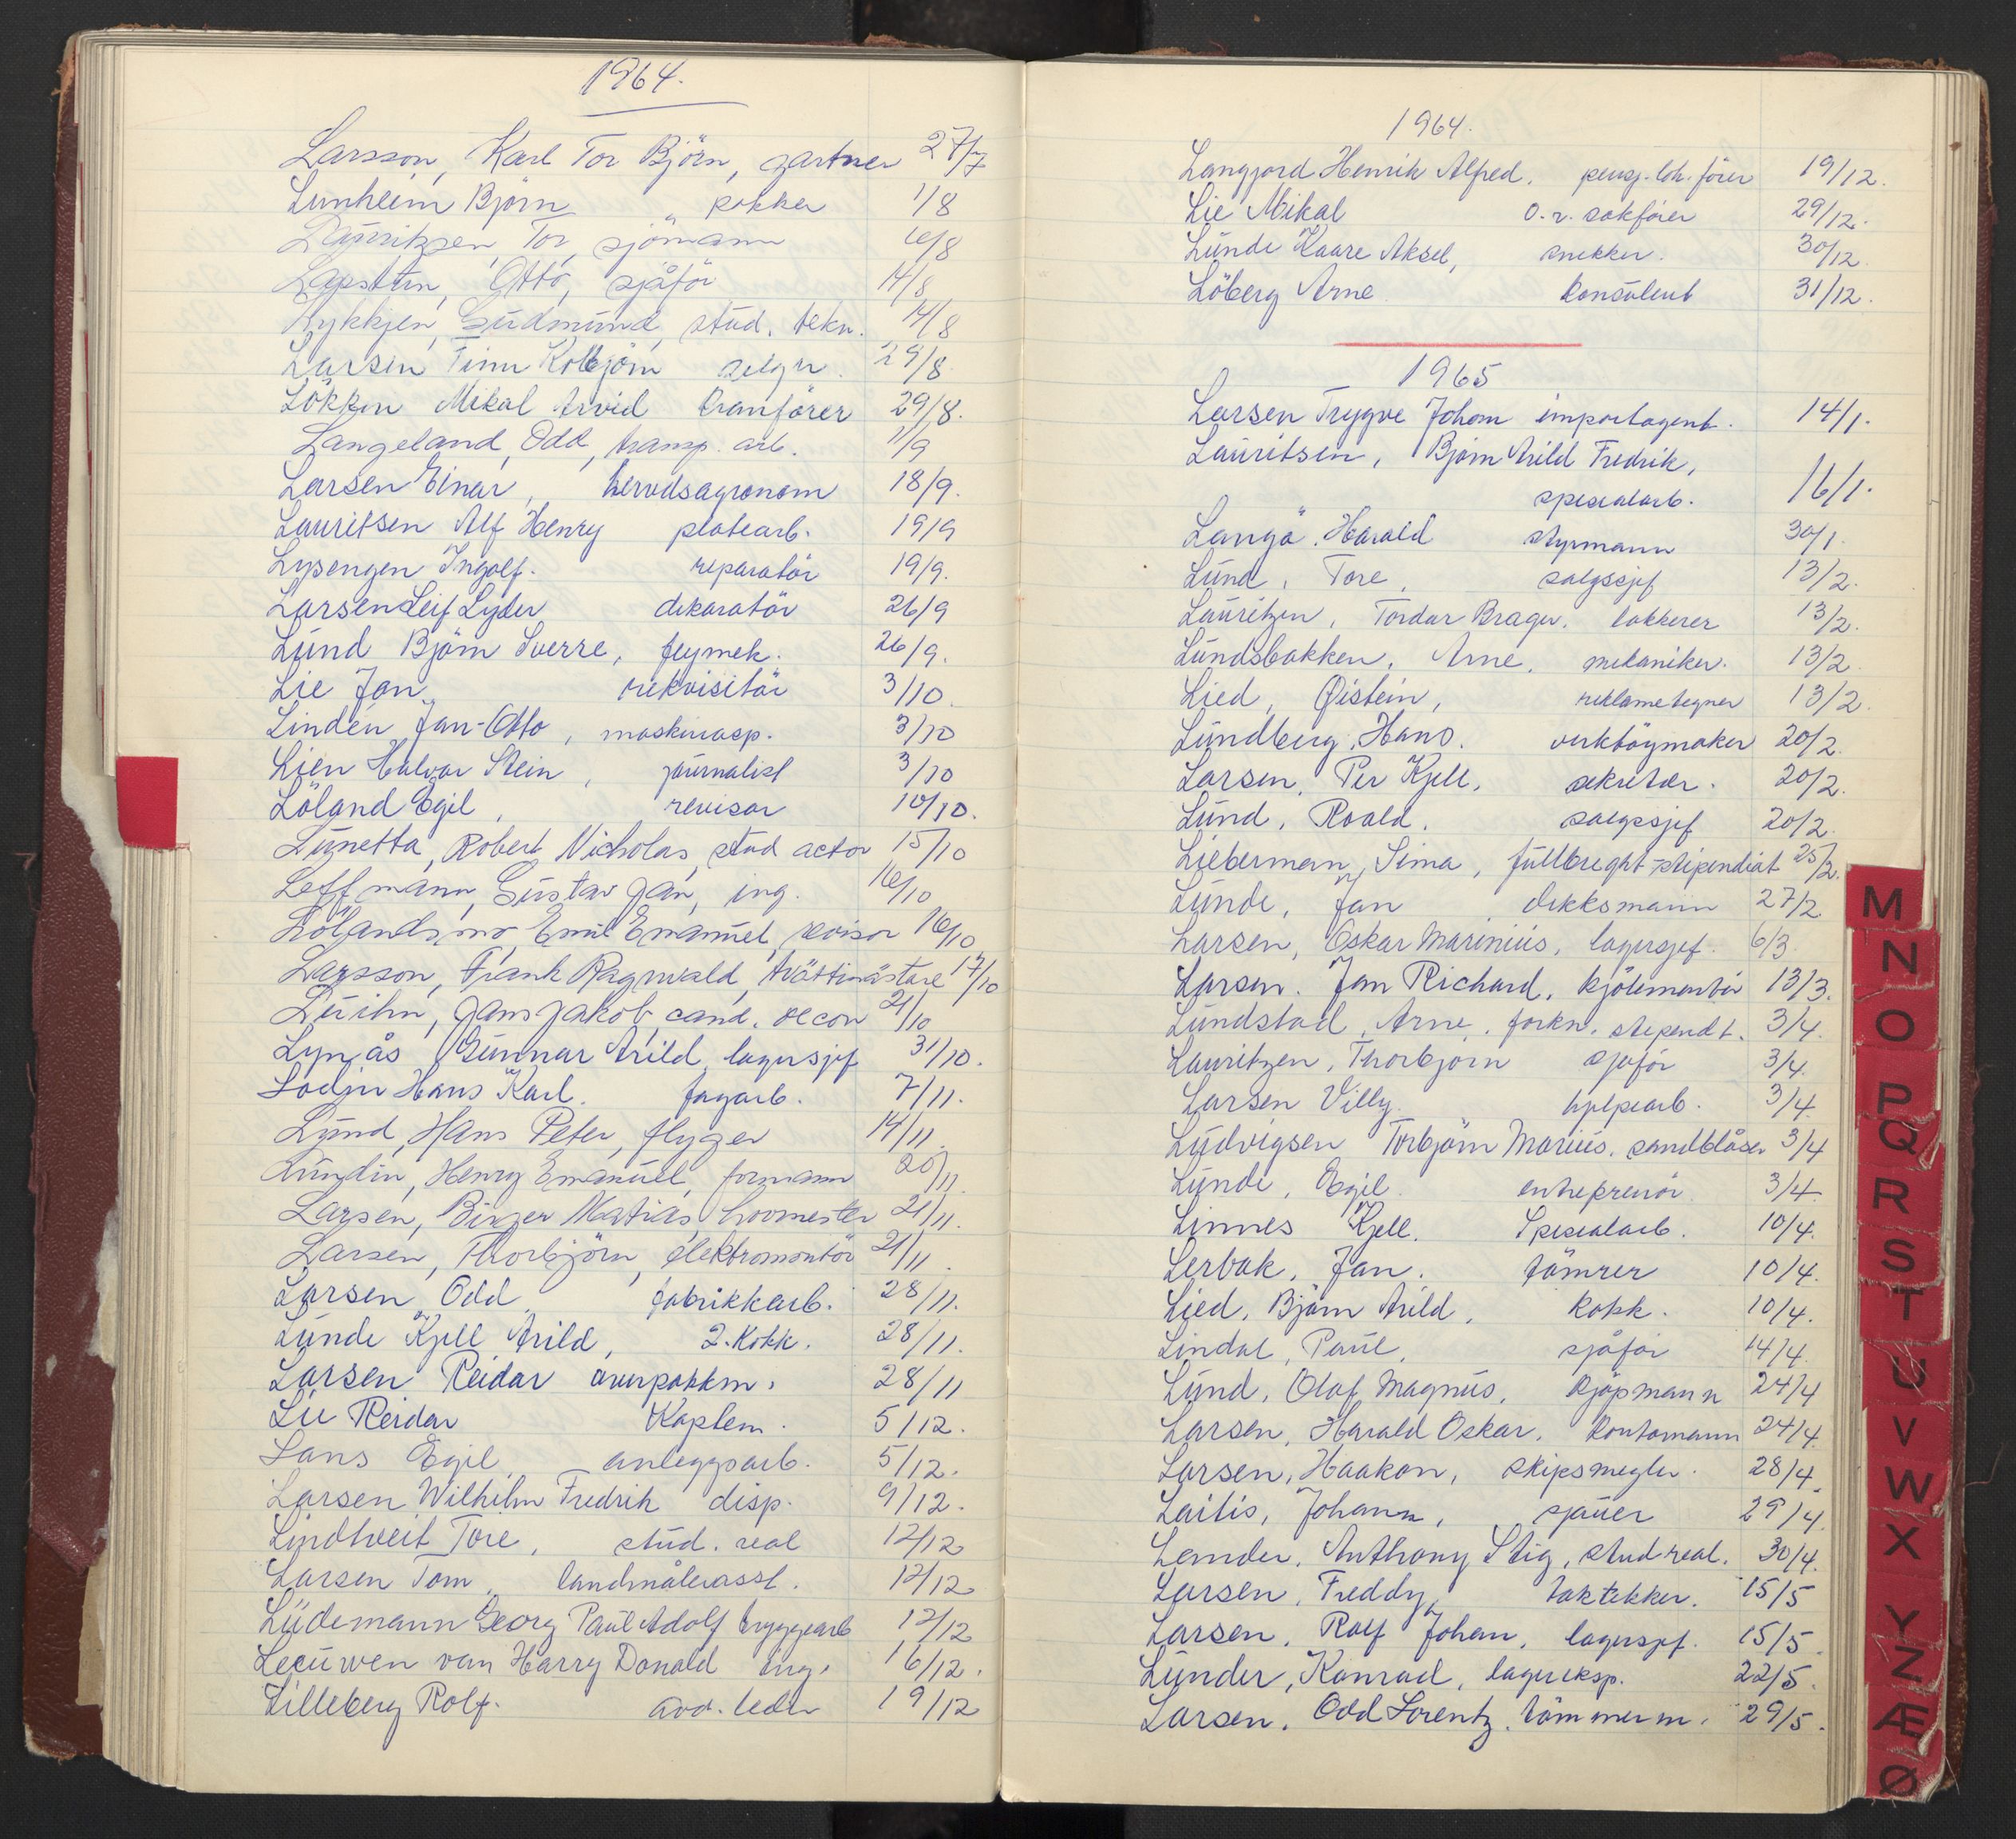 1964.
Larsson, Karl Tor Björn, gartner 27/7
Lunheim Bjørn pakker 1/8
Lauritzen, Tor, sjömann 10/8
Otto, sjåför 14/8
Lykkjen, Gudmund, stud. tekn. 14/8
Larsen Finn Kolbjörn selger 29/8
Lökken Mikal Arvid kranförer 29/8.
Langeland, Odd, transp. arb. 1/9
Larsen Einar, herredsagronom 18/9.
Lauritsen Alf Henry platearb. 19/9
Lysengen Ingolf. reparatör 19/9.
Larsen Leif Lyder dekoratör 26/9
Lund Björn Sverre, flymek. 26/9.
Lie Jan rekvisitör 3/10.
Lindén Jan-Otto, maskinasp. 3/10
Lien Halvar Stein, journalist 3/10
Löland Egil, revisor 10/10.
Lunetta, Robert Nicholas, stud actor 15/10
Leffmann, Gustav Jan, ing. 16/10
Lölandsmo, Emil Emanuel, revisor 16/10
Larsson, Frank Ragnvald, tvättmästare 17/10
Jans Jakob, cand. oecon 21/10
Lynås Gunnar Arild lagersjef 31/10.
Lodin Hans Karl. fagarb. 7/11.
Lund, Hans Peter, flyger 14/11.
Lundin, Henry Emanuel, formann 20/11.
Larsen, Birger Matias, hovmester 21/11.
Larsen, Thorbjörn, elektromontör 21/11.
Larsen, Odd, fabrikkarb. 28/11.
Lunde Kjell Arild, 2. kokk. 28/11.
Larsen Reidar overpakkm. 28/11
Lie Reidar Kaptein. 5/12.
Lans Egil anleggsarb. 5/12.
Larsen Wilhelm Fredrik disp. 9/12.
Lindtveit Tore, stud. real 12/12
Larsen Tom, landmålerasst. 12/12
Lüdemann Georg Paul Adolf bryggearb 12/12
Leeuwen van Harry Donald ing. 16/12.
Lilleberg Rolf. avd. leder 19/12
1964.
Langjord Henrik Alfred. 19/12.
Lie Mikal o.r. sakförer 29/12.
Lunde Kaare Aksel, snekker. 30/12
Löberg Arne konsulent 31/12.
1965
Larsen Trygve Johan importagent. 14/1.
Lauritsen, Bjørn Arild Fredrik,
spesialarb. 16/1.
Langö. Harald styrmann 30/1.
Lund, Tore, salgssjef 13/2.
Lauritzen, Tordar Brager. lakkerer 13/2.
Lundsbakken, Arne. mekaniker. 13/2
Lied, Øistein, reklametegner 13/2.
Lundberg, Hans. verktöymaker 20/2.
Larsen, Per Kjell, sekretær. 20/2.
Lund, Roald. salgssjef 20/2.
Lieberman, Sima, fullbright-stipendiat 25/2.
Lunde, Jan dekksmann 27/2
Larsen, Oskar Marinius, lagersjef. 6/3
Larsen. Jan Richard. kjölemontör 13/3.
Lundstad, Arne, forkn. stipendt. 3/4.
Lauritzen, Thorbjörn sjåför 3/4.
Larsen Villy. hjelpearb. 3/4
Ludvigsen Torbjörn Marius. sandblåser 3/4
Lunde, Egil. entreprenör. 3/4
Linnes Kjell. Spesialarb. 10/4.
Lerbak. Jan. tömrer 10/4.
Lied, Björn Arild, kokk. 10/4.
Lindal, Paul, sjåför 14/4.
Lund, Olaf Magnus, kjöpmann 24/4
Larsen, Harald Oskar. kontomann 24/4
Larsen, Haakon, skipsmegler. 28/4
Laitis, Johann, sjauer 29/4
Lander, Anthony Stig, stud real. 30/4.
Larsen, Freddy, taktekker. 15/5
Larsen, Rolf Johan, lagersjef. 15/5
Lunder, Konrad, lagereksp. 22/5.
Larsen. Odd Lorentz. tömmerm. 29/5.
M
N
O
P
Q
R
S
T
U
V
W
X
Y
Z
Æ
Ø